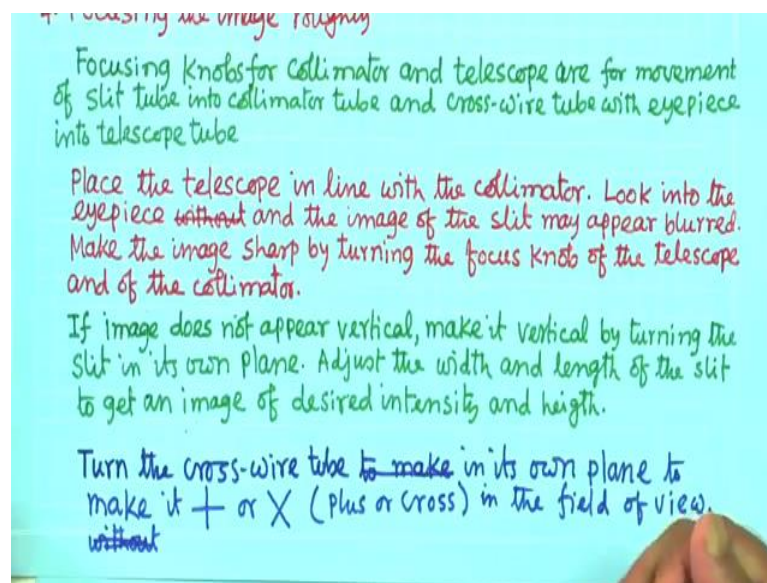 4. Focusing the image roughly
Focusing Knobs for Collimator and telescope are for movement
of slit tube into collimator tube and cross-wire tube with eyepiece
into telescope tube
Place the telescope in line with the collimator. Look into the
eyepiece without and the image of the slit may appear blurred.
Make the image sharp by turning the focus knob of the telescope
and of the collimator.
If image does not appear vertical, make it vertical by turning the
slit in its own plane. Adjust the width and length of the slit
to get an image of desired intensity and heigth.
Turn the cross-wire tube to make in its own plane to
make it + or X (plus or cross) in the field of view.
without